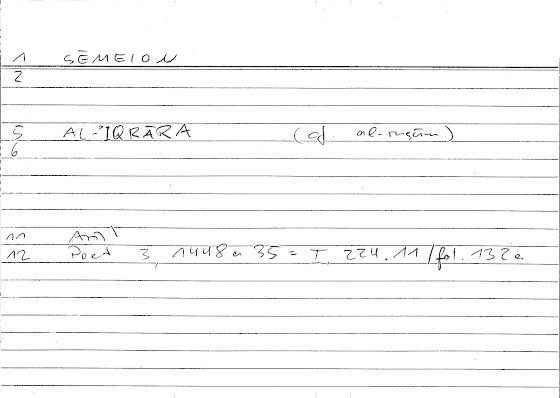 1 SĒMEION
2
5 AL-'IQRĀRA (cf. al-
6
11 Arist
12 Poet 3, 1448 a 35 = T, 224.11/fol. 132a